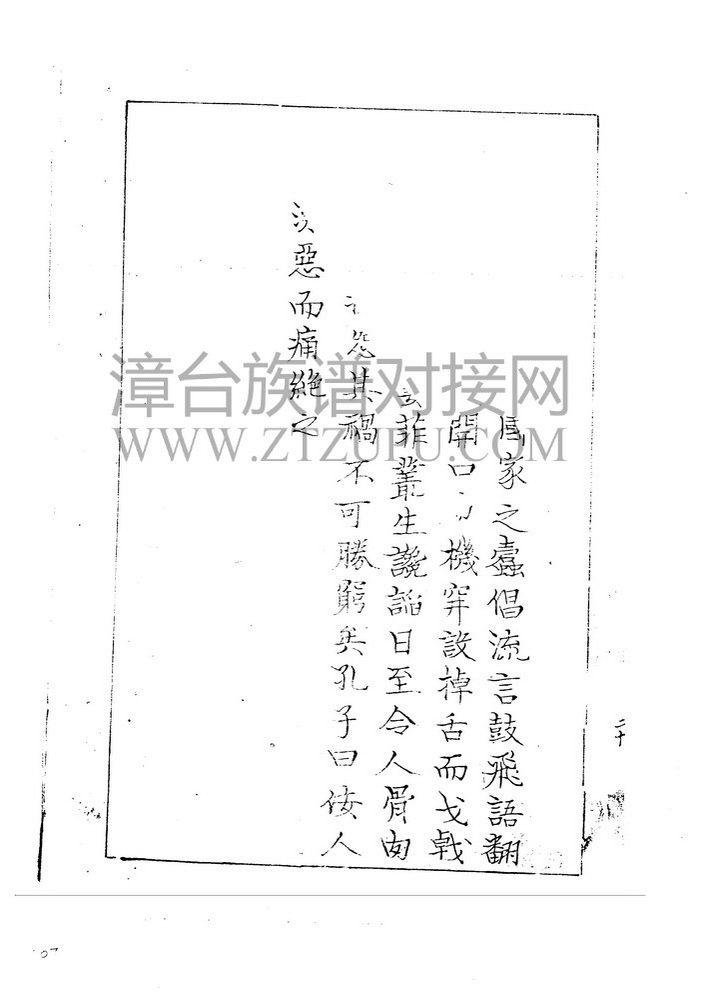 家之蠹倡流言鼓飛語翻
開口機穽設掉舌而戈戟
菲叢生讒謟日至令人骨肉
其禍不可勝窮矣孔子曰佞人
惡而痛絕之
二十
漳台族谱对接网
WWW.ZTZUPU.COM
07